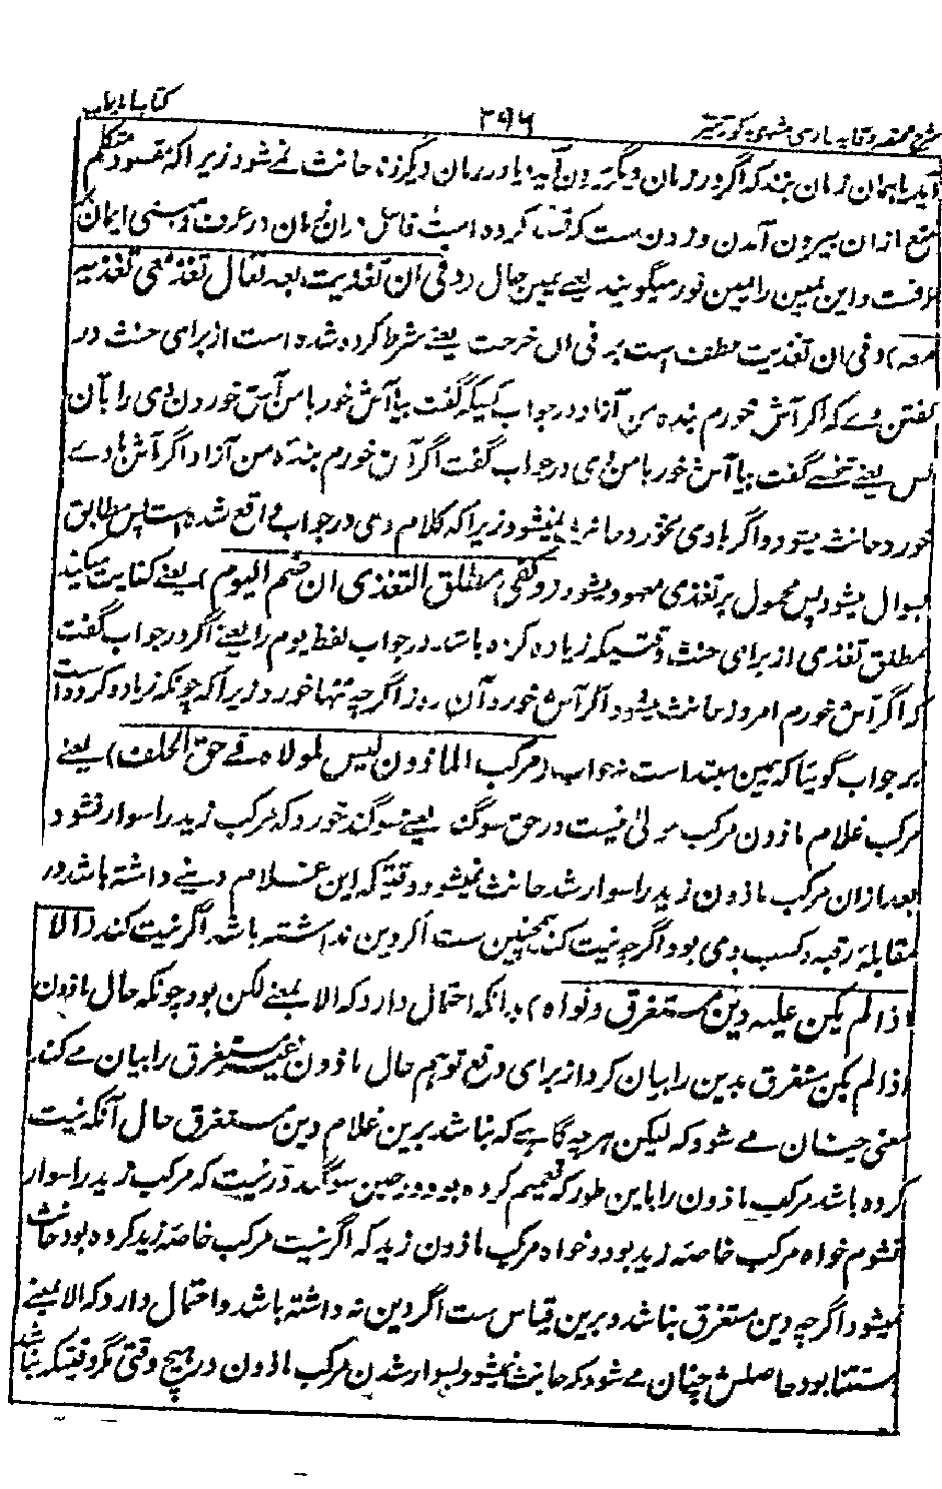 کتاب الایمان
۲۹۶
شرح مختصر وقایه فارسی مشهور بکور شیر
آید یا همان زمان بزند که اگر در زمان دیگر بیرون آید یا در زمان دیگر زند حانث نمے شود زیرا که مقصود متکلم
منع ازان بیرون آمدن و زدن ست که قصد کرده است در عرف و مبنی ایمان
عرفست و این یمین را یمین فور میگویند یعنے یمین حال (و فی ان تغدیت بعد تعال تغد معی تغدیه
معه) و فی ان تغدیت عطف است بر فی ان خرجت یعنے شرط کرده شده است از برای حنث در
گفتن وے که اگر آش خورم بنده من آزاد در جواب کسیکه گفت بیا آش خور با من آش خوردن وی را بآن
کس یعنے شخصے گفت بیا آش خور با من وی در جواب گفت اگر آش خورم بنده من آزاد اگر آش با وے
خورد حانث میشود و اگر با وی نخورد حانث نمیشود زیرا که کلام وی در جواب واقع شده است پس مطابق
سوال میشود پس محمول بر تغدی معهود میشود (و کفی مطلق التغدی ان ضم الیوم) یعنے کفایت میکند
مطلق تغدی از برای حنث وقتیکه زیاده کرده باشد در جواب لفظ یوم را یعنے اگر در جواب گفت
که اگر آش خورم امروز حانث میشود اگر آش خورد آن روز اگرچه تنها خورد زیرا که چونکه زیاده کرده است
بر جواب گوئیا که یمین مبتدا ست نه جواب (و مرکب الماذون لیس لمولاه فے حق الحلف) یعنے
مرکب غلام ماذون مرکب مولیٰ نیست در حق سوگند یعنے سوگند خورد که مرکب زید را سوار نشود و
بعد ازان مرکب ماذون زید را سوار شد حانث نمیشود وقتیکه این غلام دینے داشته باشد در
مقابلهٔ رقبه و کسب وی بود اگرچه نیت کند همچنین ست اگر دین نداشته باشد اگر نیت کند (الا
اذا لم یکن علیه دین مستغرق و نواه) بدانکه احتمال دارد که الا بمعنے لکن بود چونکه حال ماذون
اذا لم یکن مستغرق بدین را بیان کرد از برای دفع توهم حال ماذون غیر مستغرق را بیان مے کند
معنی چنان مے شود که لیکن هرچه گاہے که نباشد برین غلام دین مستغرق حال آنکه نیت
کرده باشد مرکب ماذون را باین طور که تعمیم کرده بود در حین سوگند در نیت که مرکب زید را سوار
نشوم خواه مرکب خاصهٔ زید بود و خواه مرکب ماذون زید که اگر نیت مرکب خاصهٔ زید کرده بود حانث
نمیشود اگرچه دین مستغرق نباشد و برین قیاس ست اگر دین نه داشته باشد و احتمال دارد که الا بمعنے
استثنا بود حاصلش چنان مے شود که حانث نمیشود بسوار شدن مرکب ماذون در هیچ وقتی مگر وقتیکه نباشد